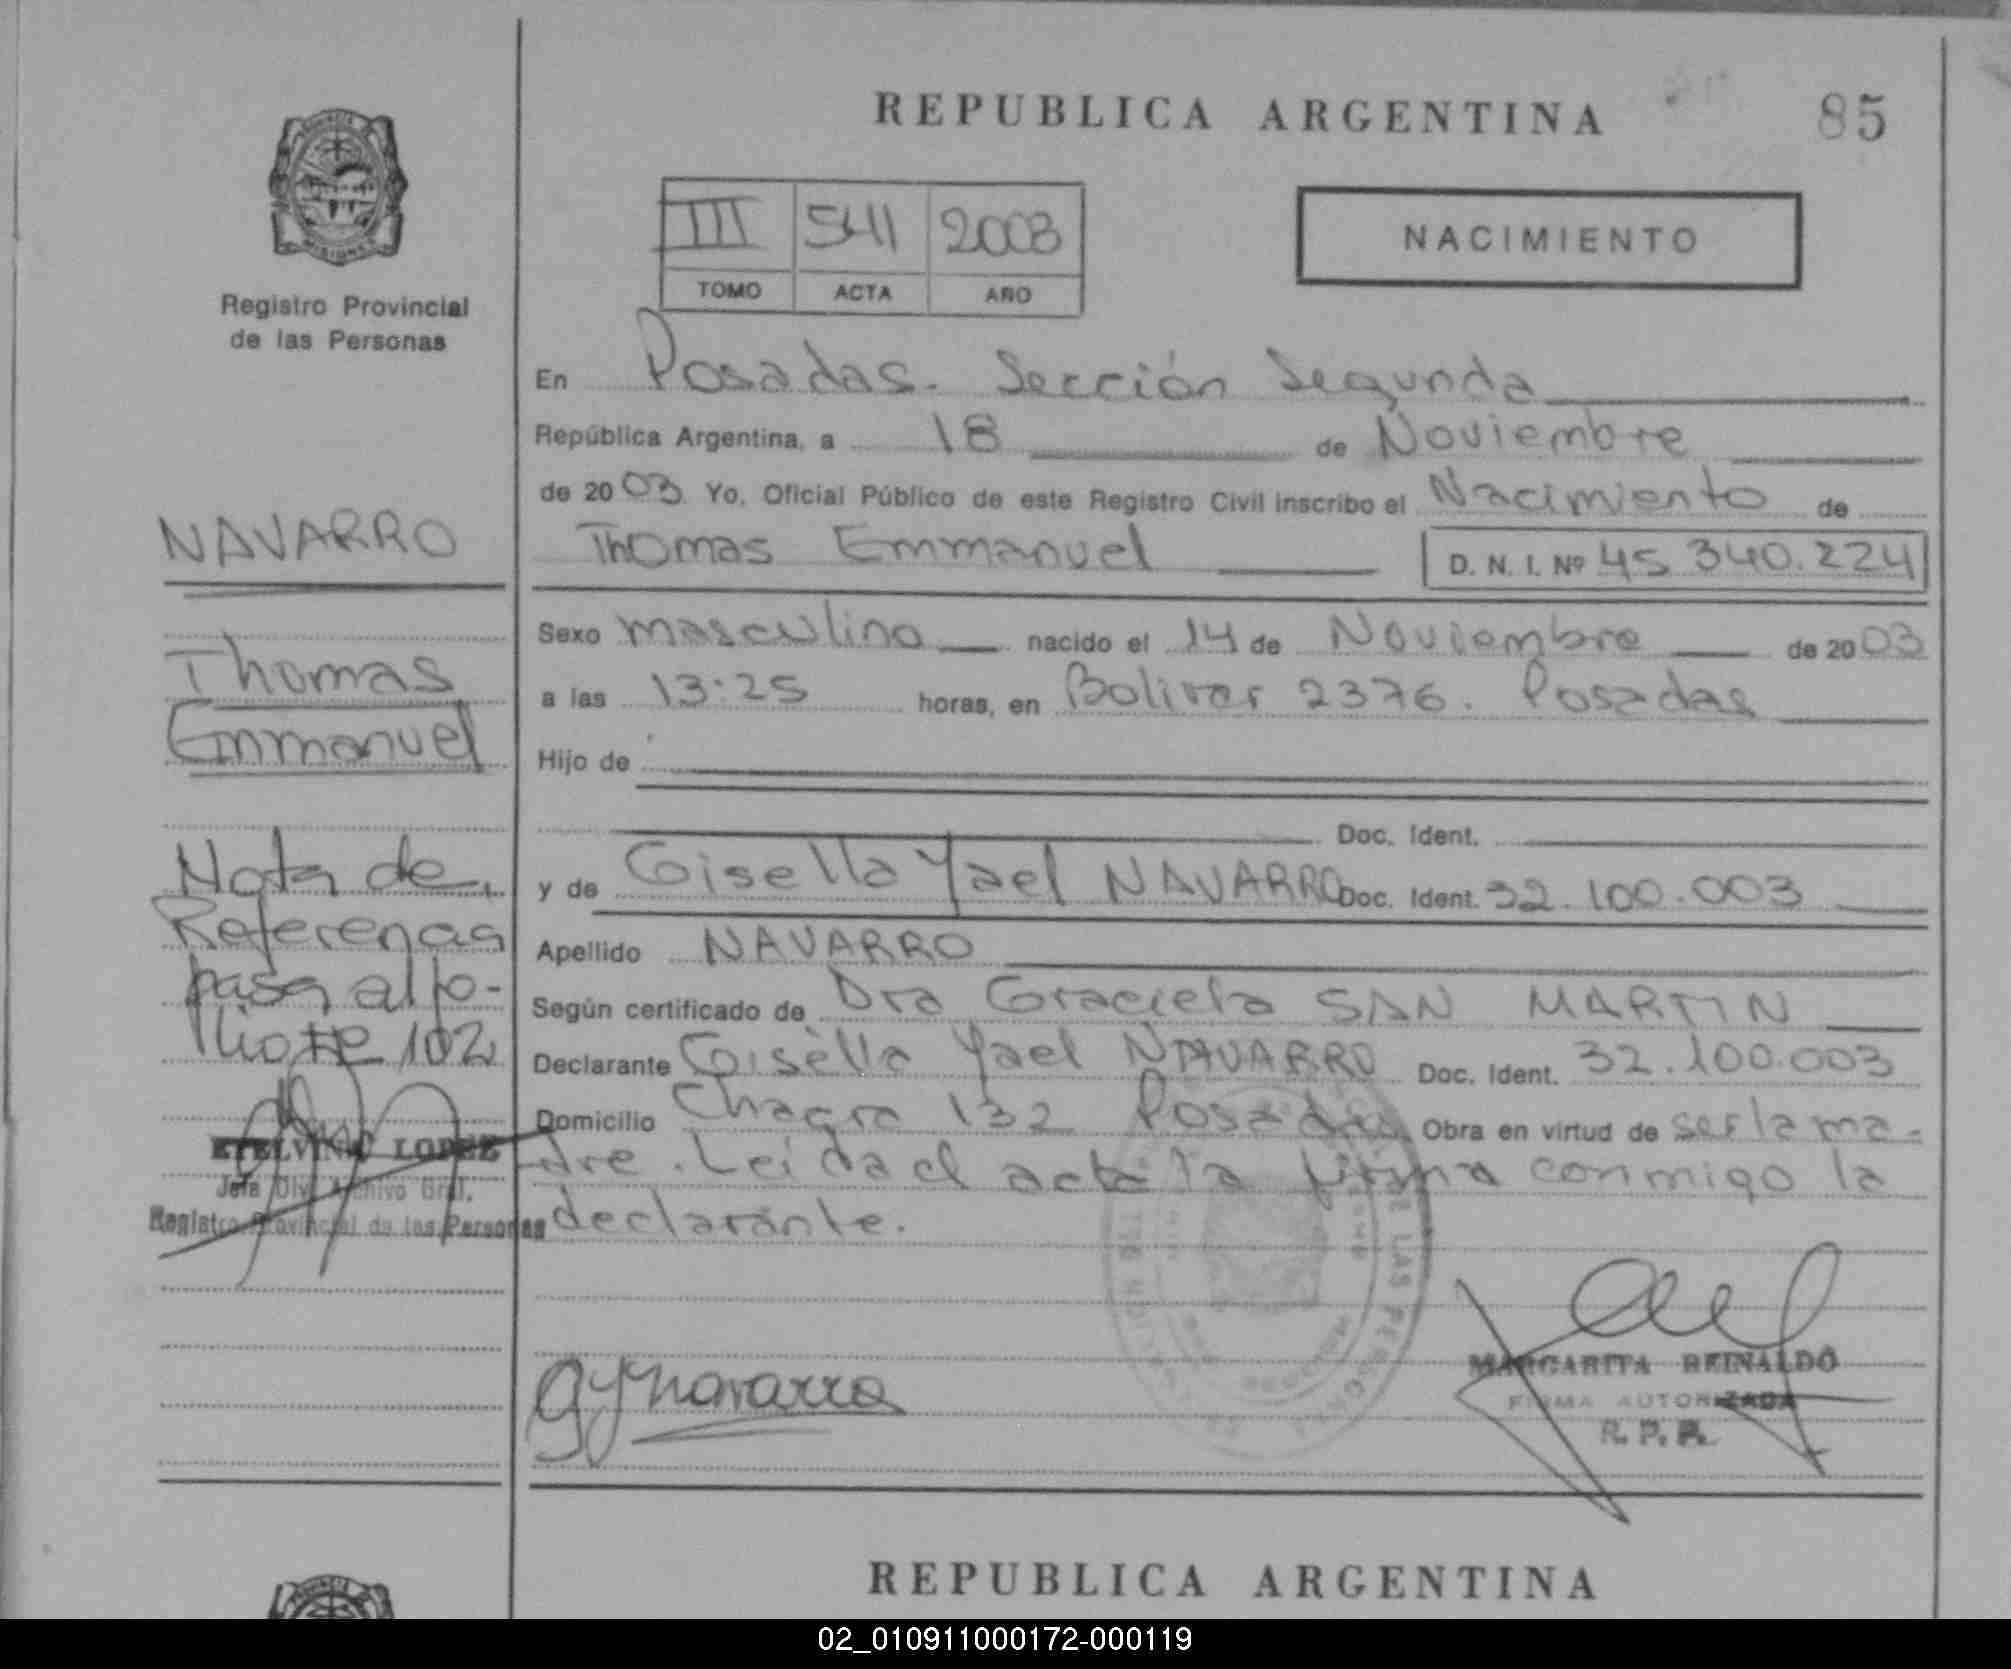 REPUBLICA ARGENTINA
85
III 541 2003
TOMO ACTA AÑO
NACIMIENTO
Registro Provincial
de las Personas
En Posadas. Sección Segunda
República Argentina, a 18 de Noviembre
de 2003 Yo, Oficial Público de este Registro Civil inscribo el Nacimiento de
Thomas Emmanuel D. N. I. Nº 45.340.224
Sexo masculino nacido el 14 de Noviembre de 2003
a las 13:25 horas, en Bolivar 2376. Posadas
Hijo de
Doc. Ident.
y de Gisella Yael NAVARRO Doc. Ident. 32.100.003
Apellido NAVARRO
Según certificado de Dra Graciela SAN MARTIN
Declarante Gisella Yael NAVARRO Doc. Ident. 32.100.003
Domicilio Chacra 132 Posadas Obra en virtud de ser la ma-
dre. Leída el acta la firma conmigo la
declarante.
gynavarro
MARGARITA REINALDO
FIRMA AUTORIZADA
R. P. P.
NAVARRO
Thomas
Emmanuel
Nota de
Referencia
pasa al fo-
lio 102
ETELVINA LOPEZ
Jefa Div. Archivo Gral.
Registro Provincial de las Personas
REPUBLICA ARGENTINA
02_010911000172-000119